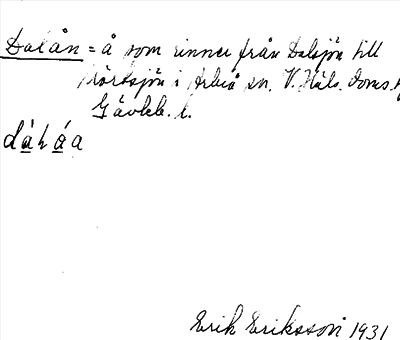 Dalån = å som rinner från Dalsjön till
Körtsjön i Arbrå sn. V. Häls. doms.
Gävleb. l.
dáhåa
Erik Eriksson 1931